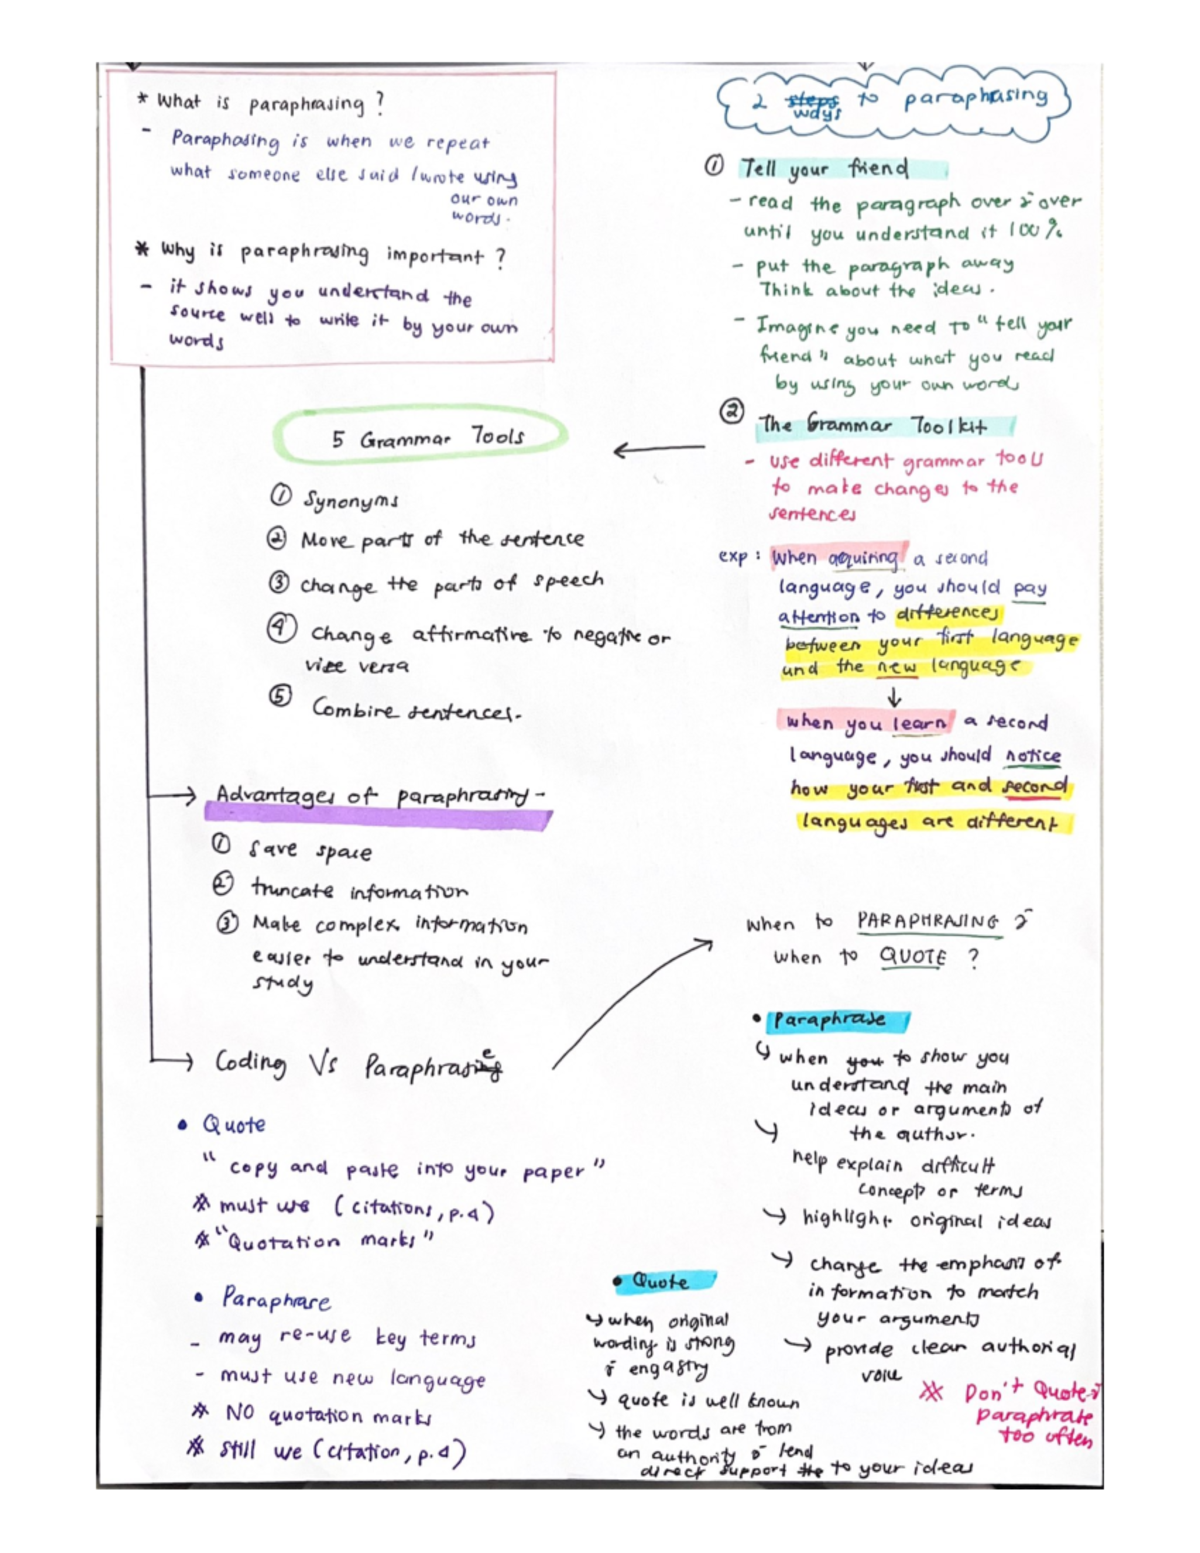 * What is paraphrasing ?
- Paraphasing is when we repeat
what someone else said / wrote using
our own
words.
* Why is paraphrasing important ?
- it shows you understand the
source well to write it by your own
words
2 steps to paraphasing
ways
① Tell your friend
- read the paragraph over & over
until you understand it 100%
- put the paragraph away
Think about the ideas.
- Imagine you need to "tell your
friend" about what you read
by using your own words
② The Grammar Toolkit
- use different grammar tools
to make changes to the
sentences
exp : When aquiring a second
language, you should pay
attention to differences
between your first language
and the new language
↓
when you learn a second
language, you should notice
how your first and second
languages are different
5 Grammar Tools
① Synonyms
② Move parts of the sentence
③ change the parts of speech
④ Change affirmative to negative or
vize versa
⑤ Combine sentences.
Advantages of paraphrasing -
① Save space
② truncate information
③ Make complex information
easier to understand in your
study
Coding Vs Paraphrasing
e
• Quote
" copy and paste into your paper "
* must use (citations, p.4)
* "Quotation marks"
• Paraphrase
- may re-use key terms
- must use new language
* NO quotation marks
* still use (citation, p.4)
When to PARAPHRASING &
when to QUOTE ?
• Paraphrase
↳ when you to show you
understand the main
ideas or arguments of
the author.
↳ help explain difficult
concepts or terms
↳ highlight original ideas
↳ change the emphasis of
information to match
your arguments
↳ provide clear authorial
voice
• Quote
↳ when original
wording is strong
& engastry
↳ quote is well known
↳ the words are from
an authority & lend
direct support the to your ideas
** Don't Quote &
paraphrate
too often